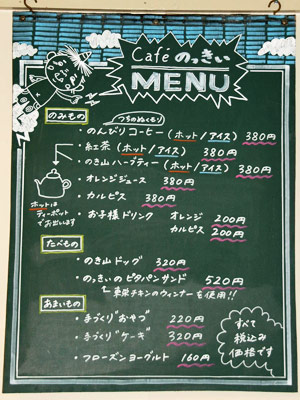 Café のっきい
MENU
のみもの
つちのぬくもり
・のんびりコーヒー (ホット/アイス) 380円
・紅茶 (ホット/アイス) 380円
・のき山ハーブティー (ホット/アイス) 380円
・オレンジジュース 380円
・カルピス 380円
・お子様ドリンク オレンジ 200円
カルピス 200円
ホットは
ティーポット
でお出します
たべもの
・のき山ドッグ 320円
・のっきいのピタパンサンド 520円
チキンのウィンナーを使用!!
あまいもの
・手づくり"おやつ" 220円
・手づくり"ケーキ" 320円
・フローズンヨーグルト 160円
すべて
税込み
価格です